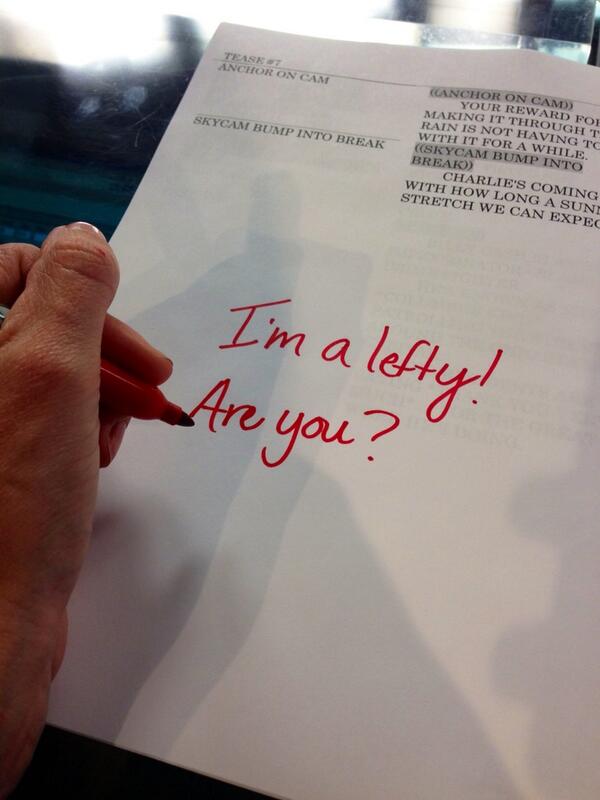 TEASE #7
ANCHOR ON CAM
SKYCAM BUMP INTO BREAK
((ANCHOR ON CAM))
YOUR REWARD FOR
MAKING IT THROUGH T
RAIN IS NOT HAVING TO
WITH IT FOR A WHILE.
((SKYCAM BUMP INTO
BREAK))
CHARLIE'S COMING
WITH HOW LONG A SUNN
STRETCH WE CAN EXPEC
I'm a lefty!
Are you?